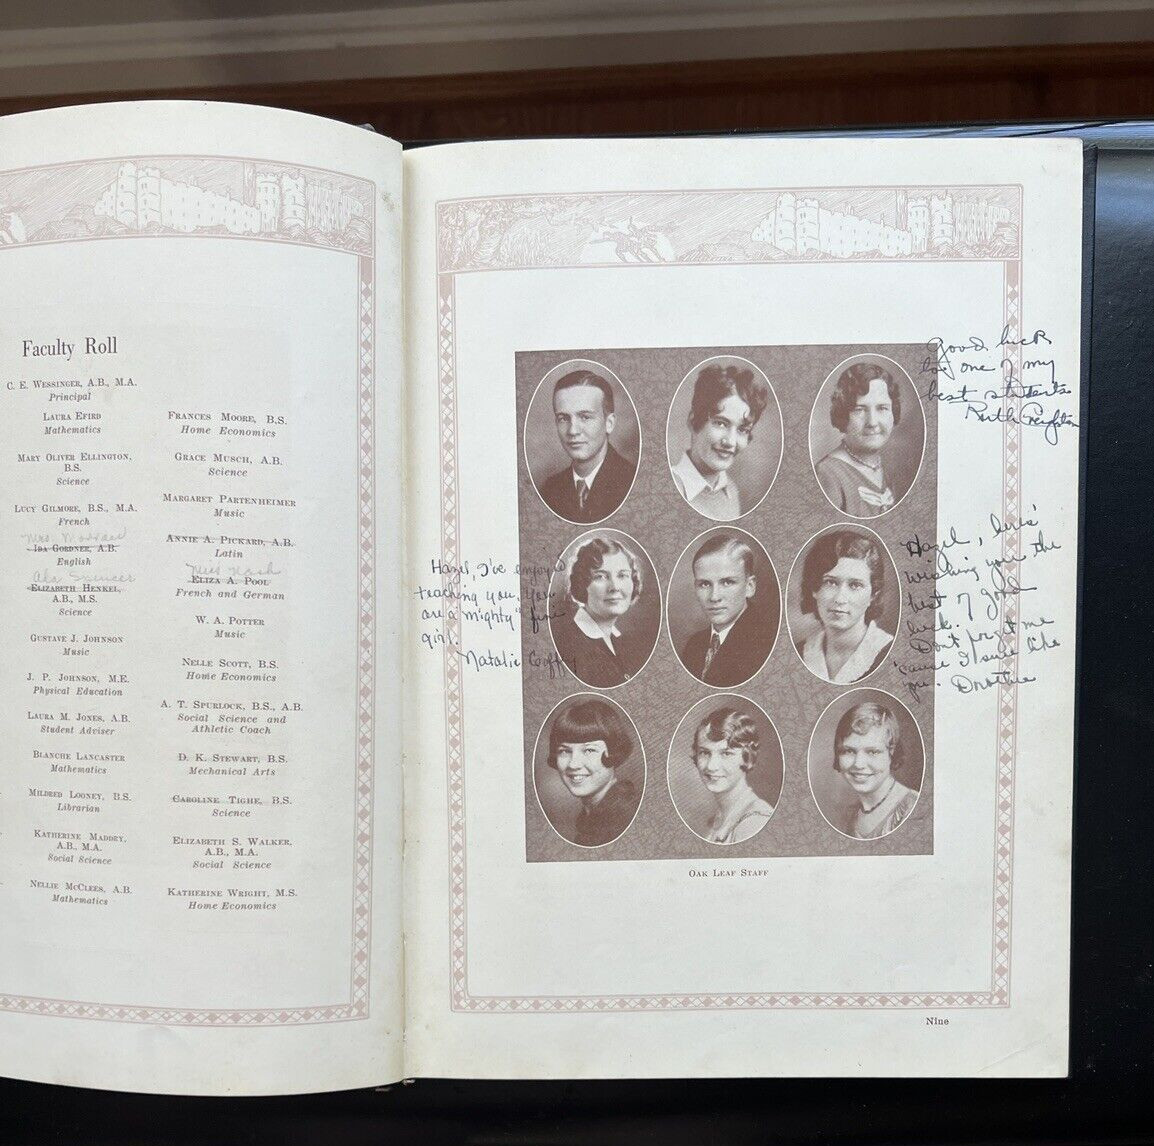 Faculty Roll
C. E. Wessinger, A.B., M.A.
Principal
Laura Efird
Mathematics
Mary Oliver Ellington,
B.S.
Science
Lucy Gilmore, B.S., M.A.
French
Mrs.
Ida Gordner, A.B.
English
Ala Spencer
Elizabeth Henkel,
A.B., M.S.
Science
Gustave J. Johnson
Music
J. P. Johnson, M.E.
Physical Education
Laura M. Jones, A.B.
Student Adviser
Blanche Lancaster
Mathematics
Mildred Looney, B.S.
Librarian
Katherine Maddry,
A.B., M.A.
Social Science
Nellie McClees, A.B.
Mathematics
Frances Moore, B.S.
Home Economics
Grace Musch, A.B.
Science
Margaret Partenheimer
Music
Annie A. Pickard, A.B.
Latin
Miss Nash
Eliza A. Pool
French and German
W. A. Potter
Music
Nelle Scott, B.S.
Home Economics
A. T. Spurlock, B.S., A.B.
Social Science and
Athletic Coach
D. K. Stewart, B.S.
Mechanical Arts
Caroline Tighe, B.S.
Science
Elizabeth S. Walker,
A.B., M.A.
Social Science
Katherine Wright, M.S.
Home Economics
Good luck
to one of my
best students
Ruth Creighton
Hazel, I've enjoyed
teaching you. You
are a mighty "fine
girl."
Natalie Coffey
Hazel, here's
wishing you the
best of good
luck.
Don't forget me
'cause I sure like
you. Dorothea
Oak Leaf Staff
Nine